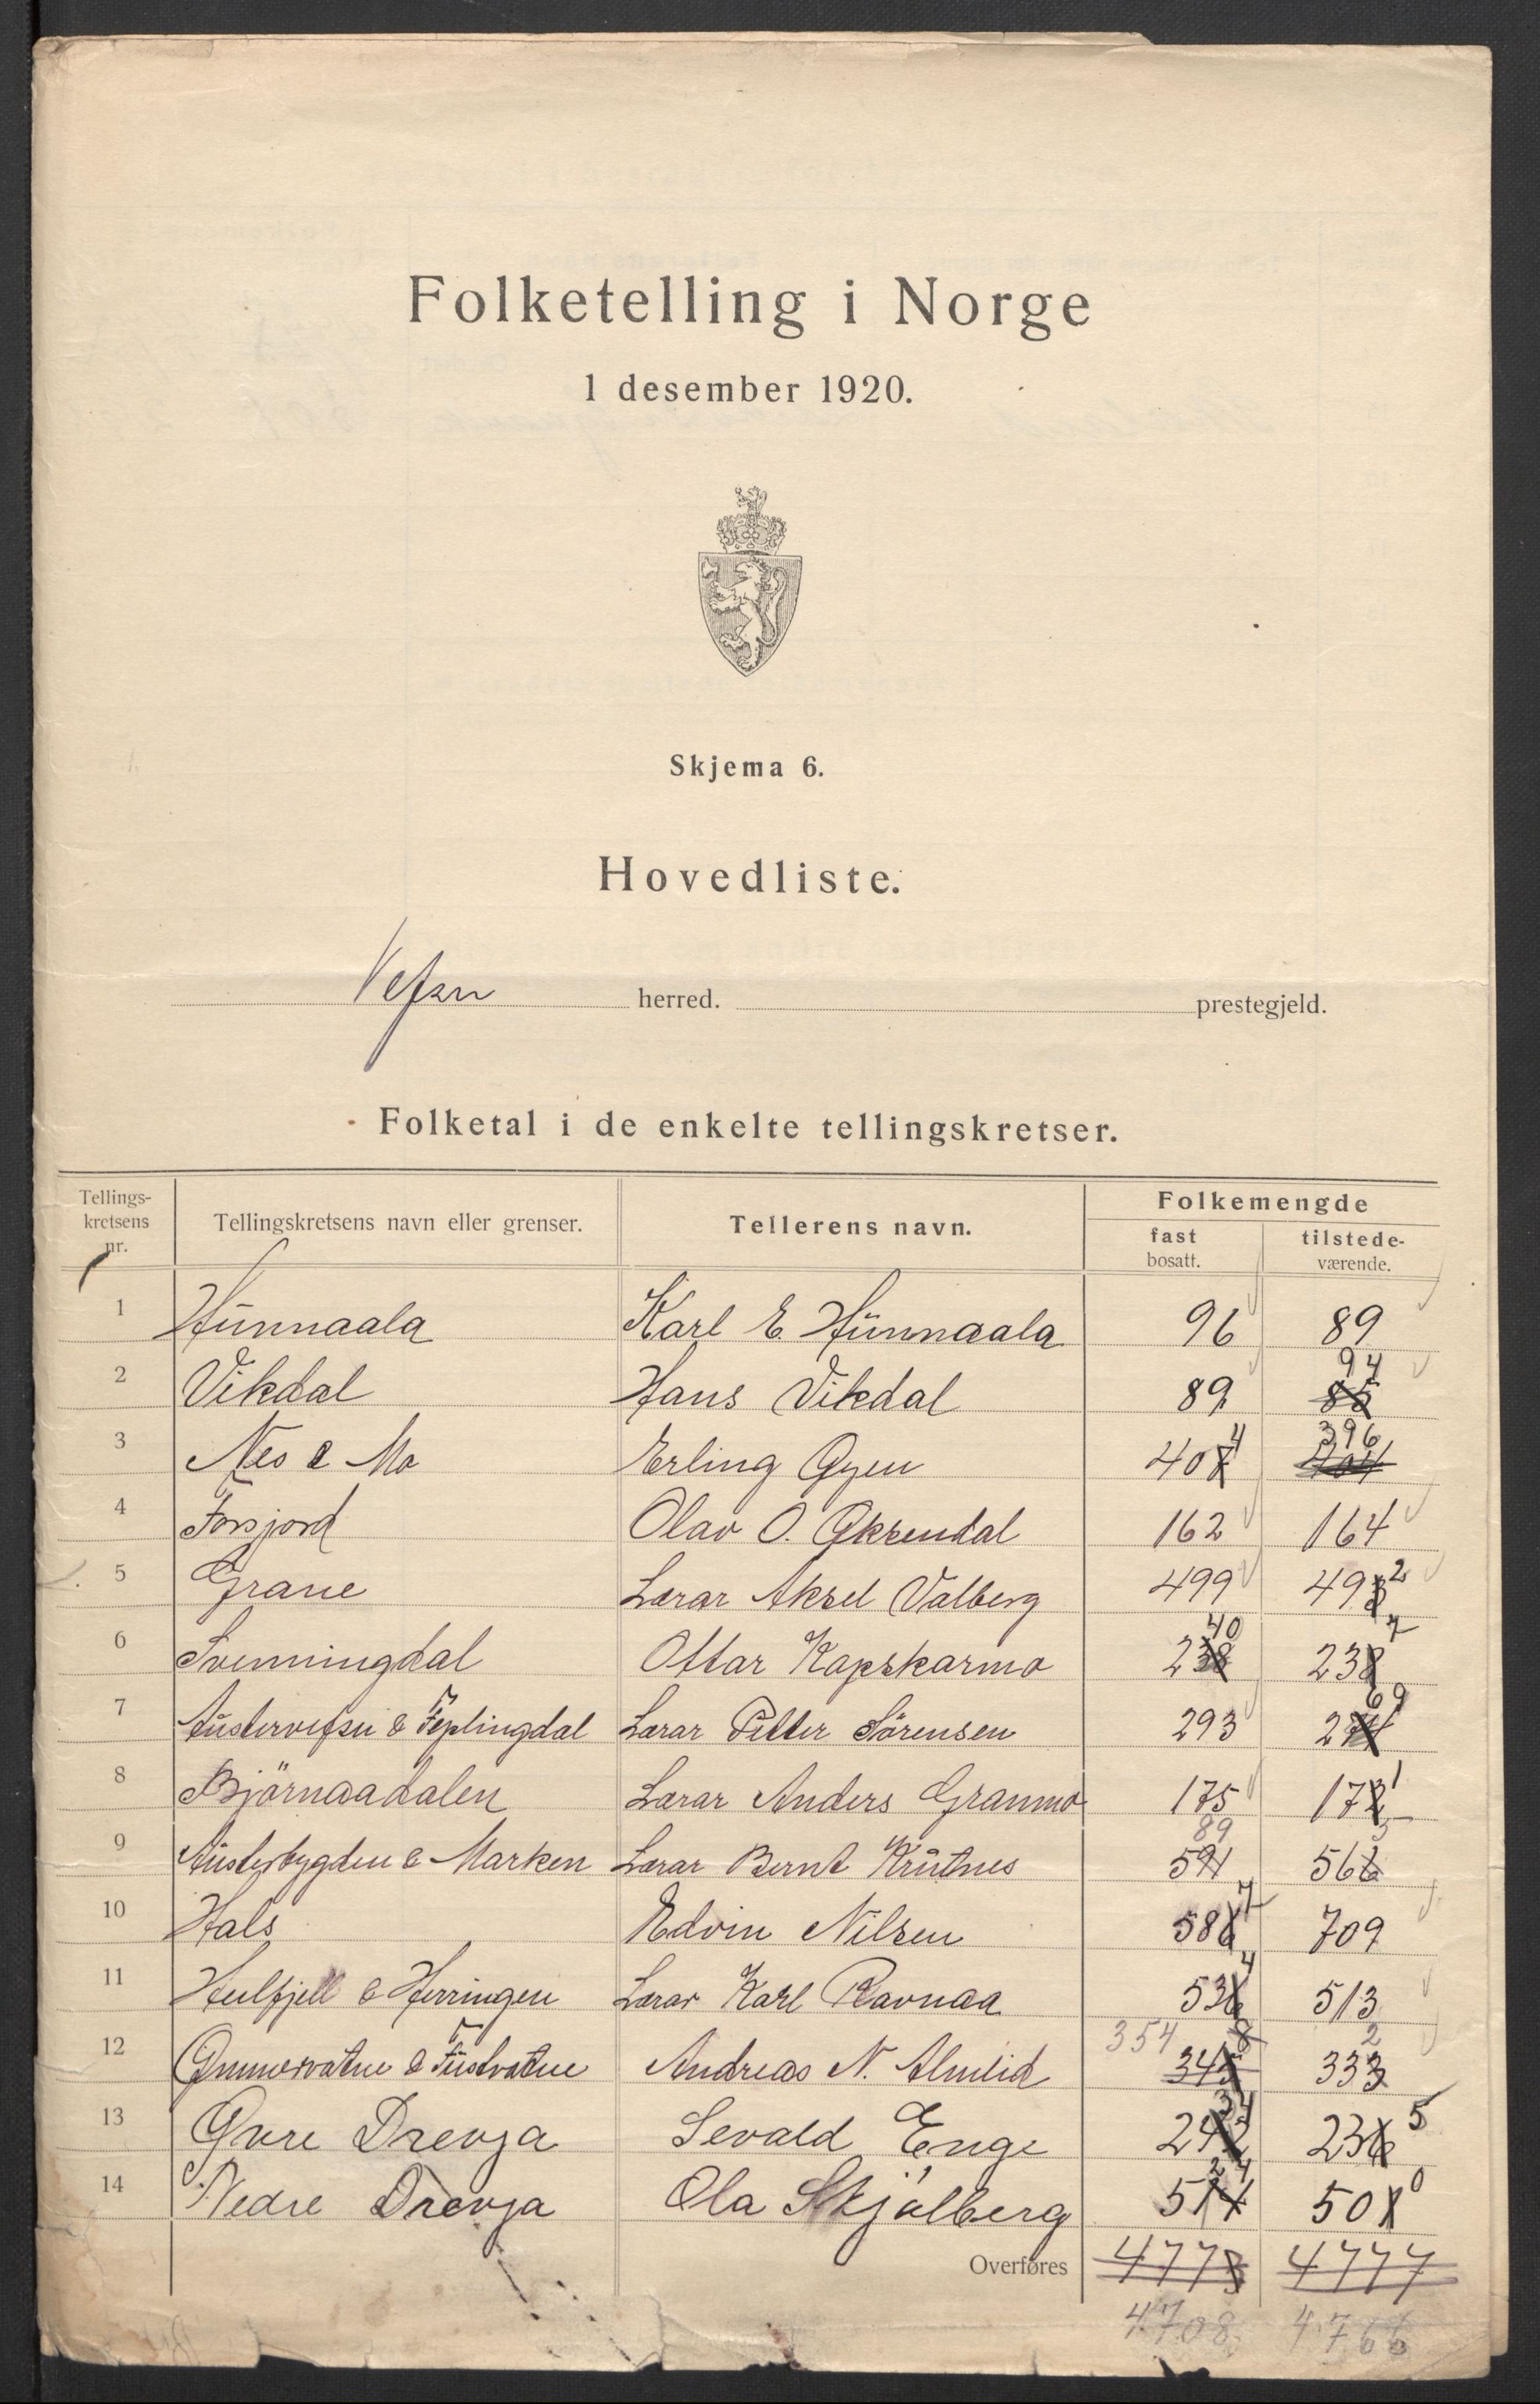 Folketelling i Norge
1 desember 1920.
Skjema 6.
Hovedliste.
Vefsn herred. prestegjeld.
Folketal i de enkelte tellingskretser.
Tellings-kretsens nr. Tellingskretsens navn eller grenser. Tellerens navn. Folkemengde
fast bosatt. tilstede-værende.
1 Hunnaala Karl E. Hunnaala 96 89
2 Vikdal Hans Vikdal 89 85 94
3 Nes & Mo Erling Øyen 407 4 404 396
4 Forsjord Olav O. Øksendal 162 164
5 Grane Lærar Aksel Valberg 499 493 2
6 Svenningdal Ottar Kapskarmo 238 40 238 7
7 Austervefsn & Fiplingdal Lærar Petter Sørensen 293 274 69
8 Björnaadalen Lærar Anders Granmo 175 172 1
9 Austerbygden & Marken Lærar Bernt Krutnes 591 89 566 5
10 Hals Edvin Nilsen 586 7 709
11 Hulfjell & Herringen Lærar Karl Ravnaa 536 4 513
12 Ømmervatne & Fustvatne Andreas N. Almlid 345 8 354 333 2
13 Øvre Drevja Sevald Enge 242 34 236 5
14 Nedre Drevja Ola Skjølberg 514 24 501 0
Overføres 4773 4777
4708 4766